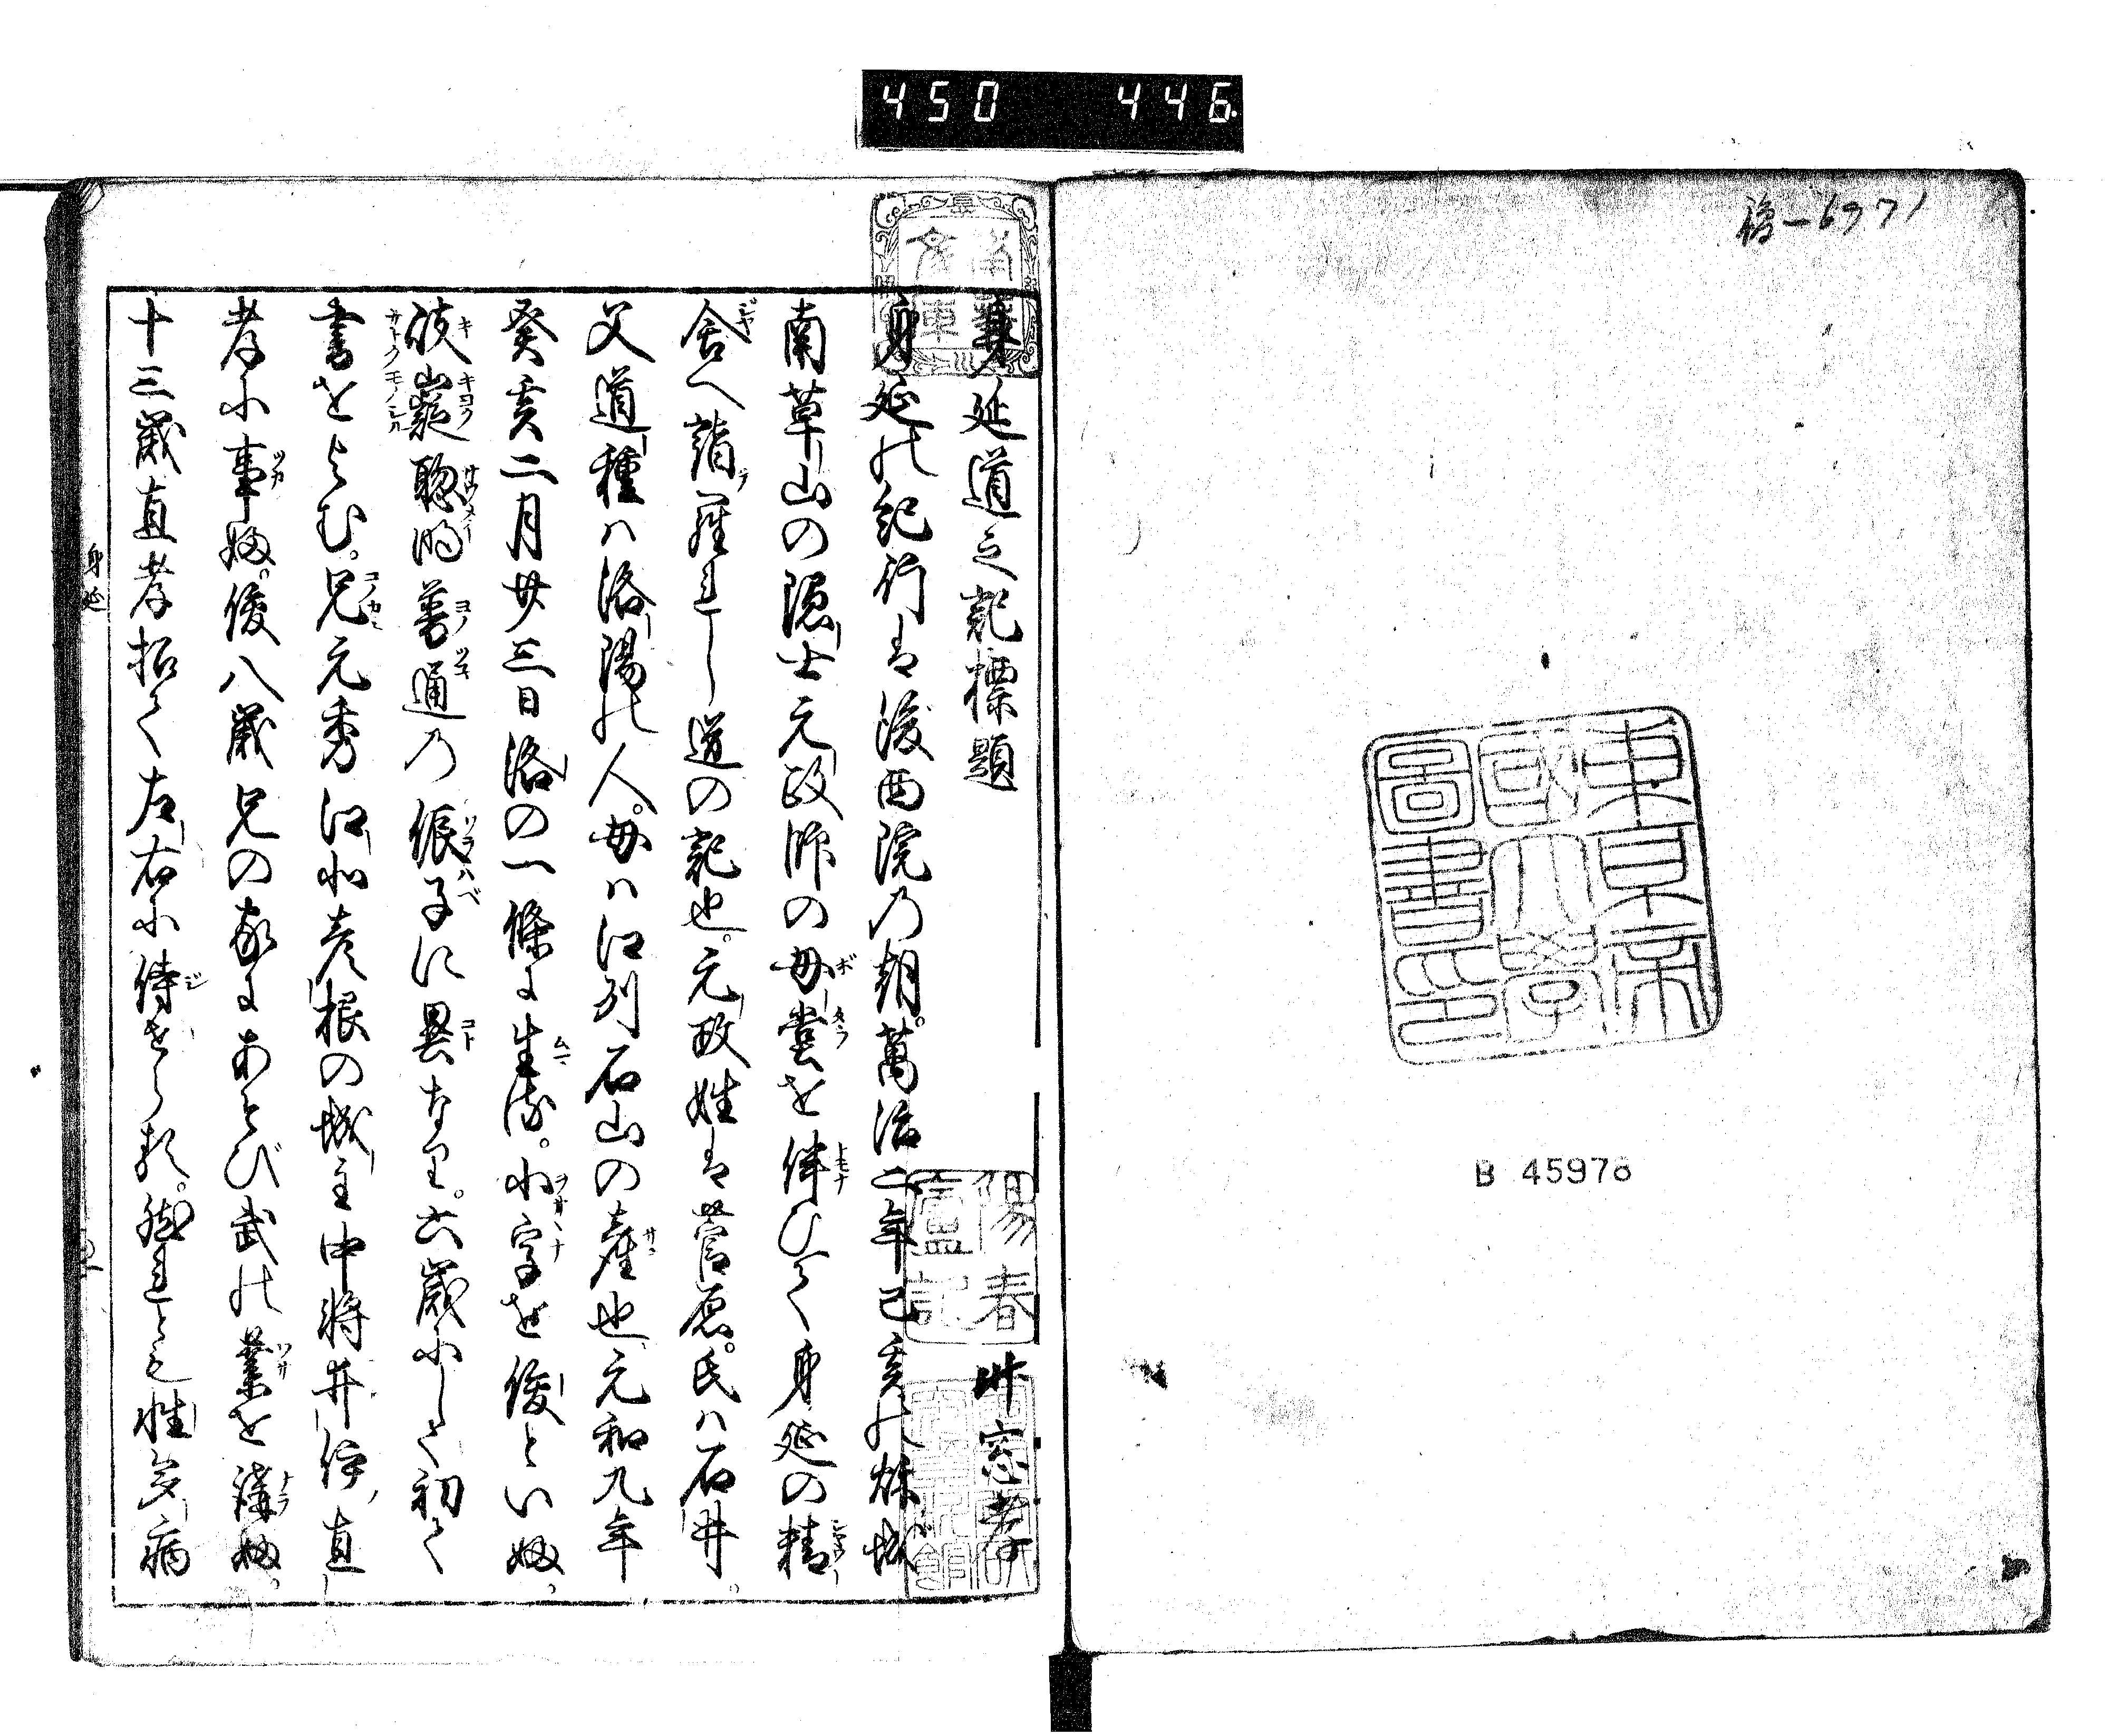 450 446
後-6971
東京帝
國大學
圖書印
B 45978
身延道之記標題
艸窓孝
身延の紀行は後西院乃朝。萬治二年己亥の秋城
南草山の隠士元政師の母堂を伴ひて身延の精
舎へ詣羅れし道の記也。元政姓は菅原。氏ハ石井。
父道種ハ洛陽の人。母ハ江列石山の産也元和九年
癸亥二月廿三日洛の一條に生る。小字を俊といふ。
岐嶷聡明普通乃侲子に異なり。六歳にして初て
書をよむ。兄元秀江州彦根の城主中将井伊直
孝に事ふ。俊八歳兄の家にあそび武の業を講ふ。
十三歳直孝招て左右に侍せらる。然れども性多病
身延
陽春
廬記